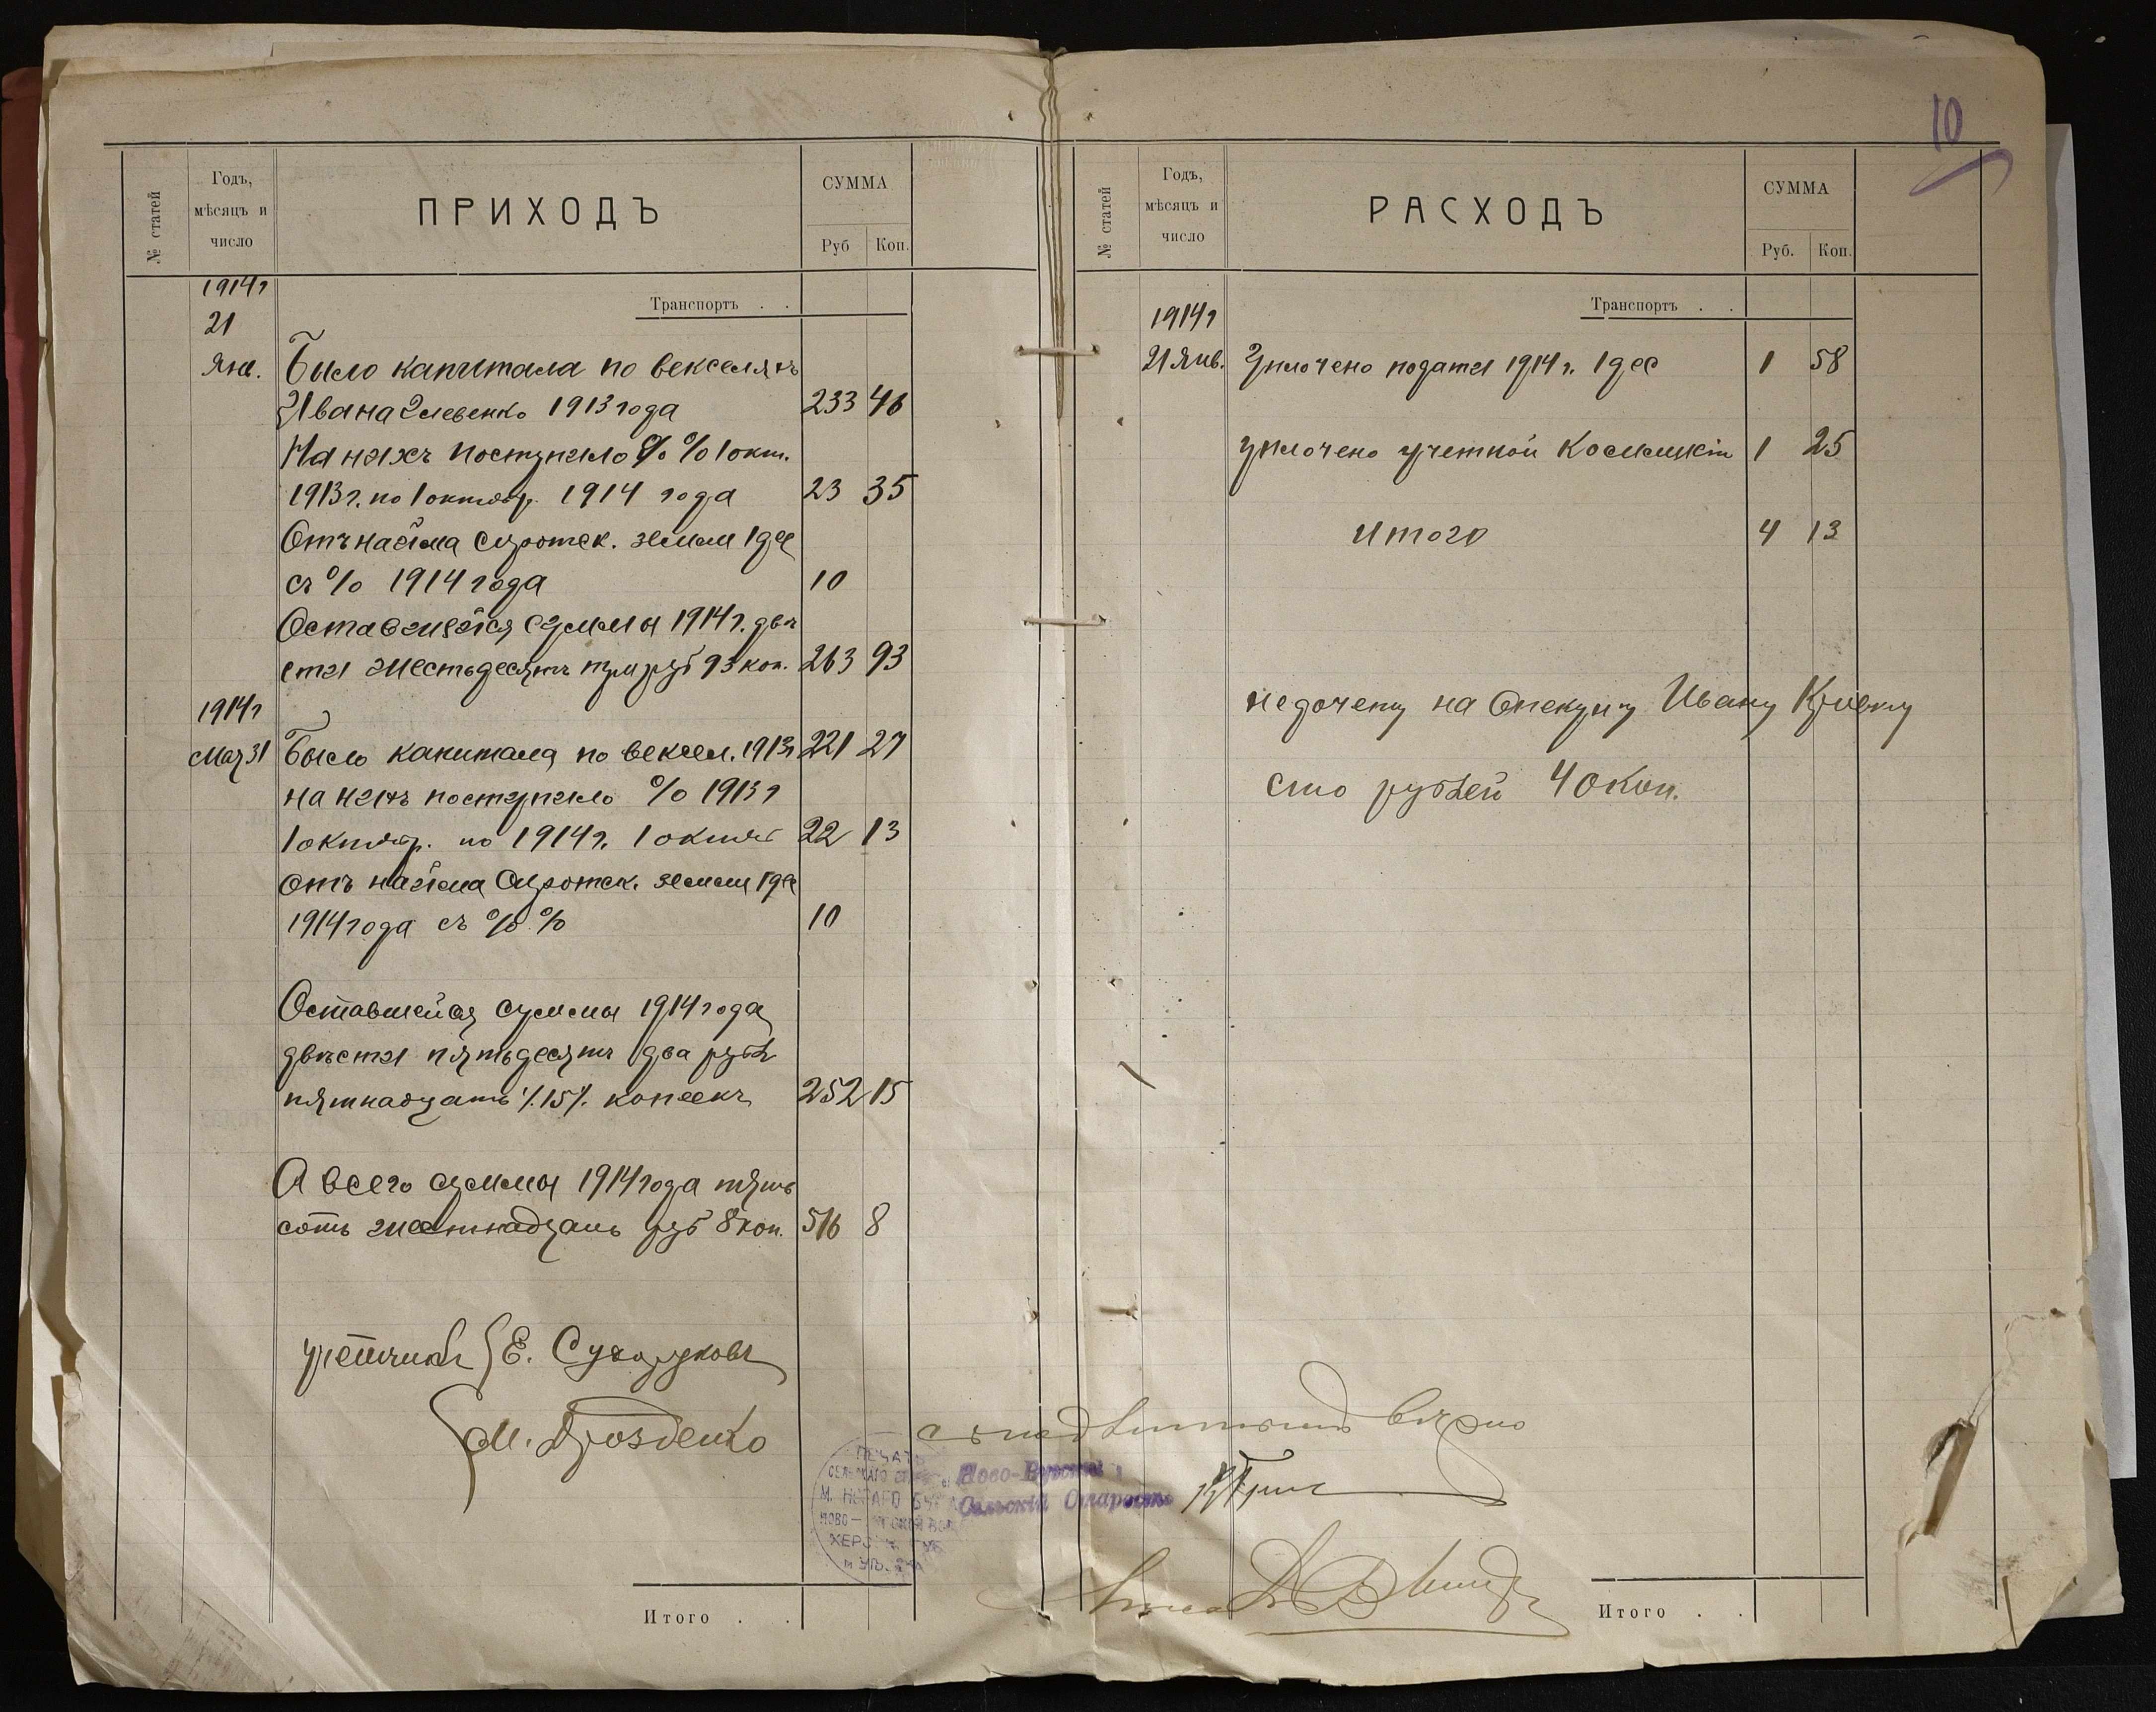 10
№ статей
Годъ,
мѣсяцъ и
число
ПРИХОДЪ
СУММА
Руб Коп.
Транспортъ . .
1914 г
21
Янв. Было капитала по векселямъ
Ивана 1913 года 233 46
На нихъ поступило % % 1 окт.
1913 г. по 1 октябр. 1914 года 23 35
Отъ найма Сиротск. земли 1 дес
съ % 1914 года 10
Оставшейся суммы 1914 г. двѣ
сти шестьдесятъ три руб 93 коп. 263 93
1914 г
Мая 31 Было капитала по вексел. 1913 г 221 27
на нихъ поступило % 1913 г
1 октябр. по 1914 г. 1 октяб 22 13
отъ найма Сиротск. земли 1 дес
1914 года съ % % 10
Оставшейся суммы 1914 года
двѣсти пятьдесятъ два рубл
пятнадцать /.15/. копеекъ 252 15
А всего суммы 1914 года пять
сотъ шестнадцать руб 8 коп. 516 8
учетчики Е. Сухоруковъ
М. Дрозденко
Итого . .
№ статей
Годъ,
мѣсяцъ и
число
РАСХОДЪ
СУММА
Руб. Коп.
Транспортъ . .
1914 г
21 Янв. Уплочено подати 1914 г. 1 дес 1 58
уплочено учетной Комиссіи 1 25
Итого 4 13
недочету на Опекуну Ивану
сто рублей 40 коп.
вѣрно
Сельскій Староста
ПЕЧАТЬ
Итого . .